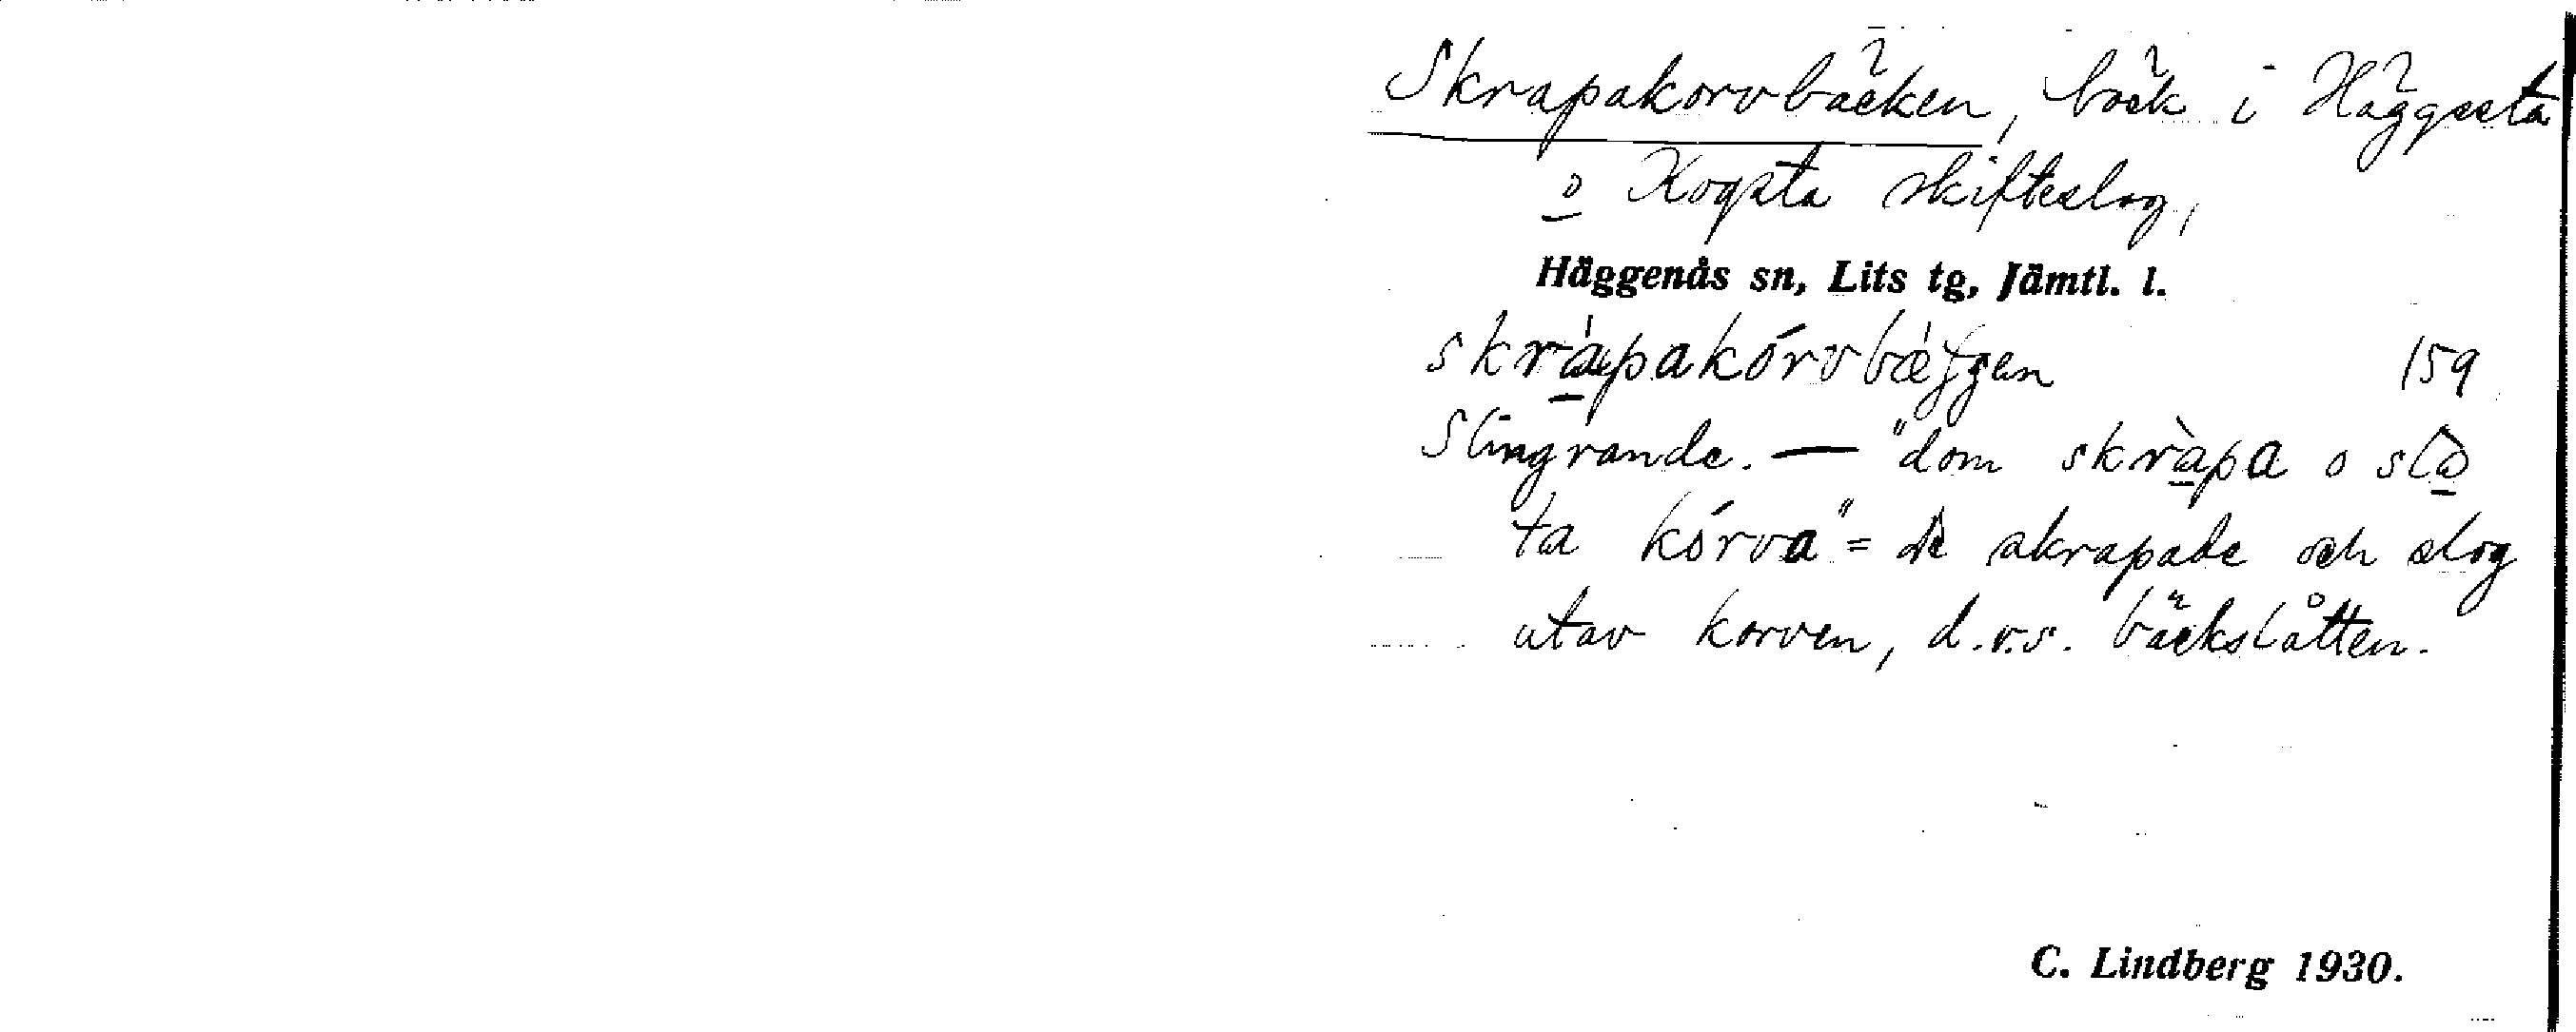 Skrapakorvbäcken, bäck i Häggsta
o Kogsta skifteslog,
Häggenås sn, Lits tg, Jämtl. l.
skràpakórvbæƒgen 159
Slingrande. — "dom skràpa o slo
ta kórva" = de skrapade och slog
utav korven, d.v.s. bäckslåtten.
C. Lindberg 1930.